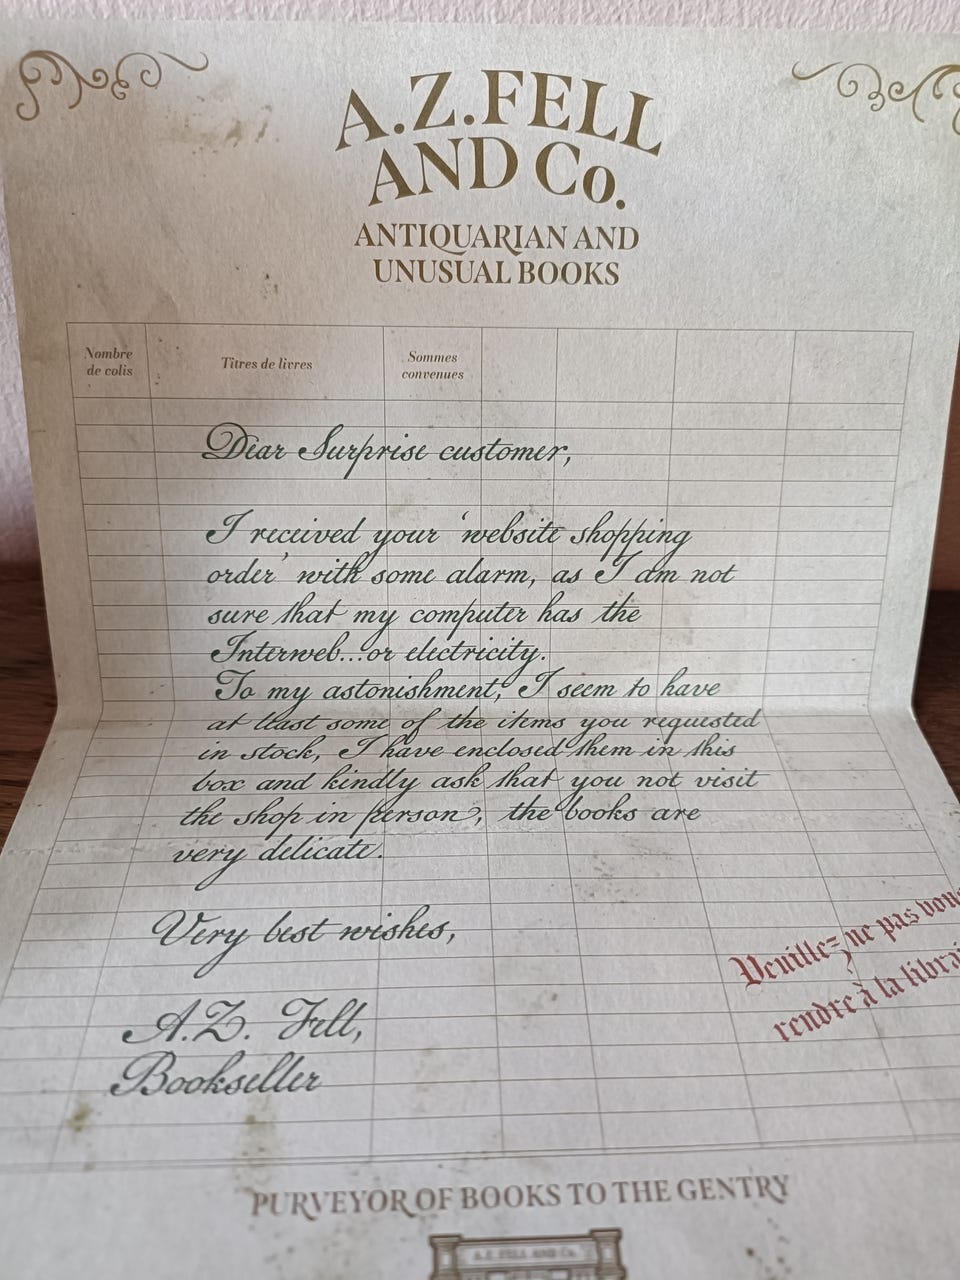 A.Z.FELL
AND Co.
ANTIQUARIAN AND
UNUSUAL BOOKS
Nombre
de colis
Titres de livres
Sommes
convenues
Dear Surprise customer,
I received your 'website shopping
order' with some alarm, as I am not
sure that my computer has the
Interweb...or electricity.
To my astonishment, I seem to have
at least some of the items you requested
in stock, I have enclosed them in this
box and kindly ask that you not visit
the shop in person, the books are
very delicate.
Very best wishes,
A.Z. Fell,
Bookseller
Veuillez ne pas vous
rendre à la librai
PURVEYOR OF BOOKS TO THE GENTRY
A.Z. FELL AND Co.